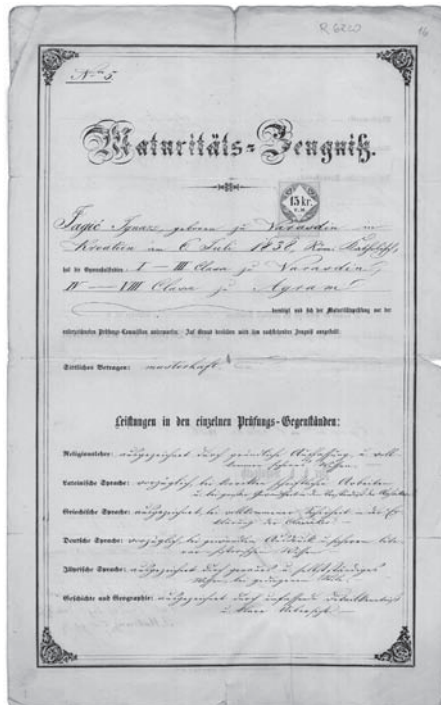 R 6220
16
Nro 5.
Maturitäts-Zeugniß.
15 kr.
Jagić Ignaz, geboren zu Varasdin in
Kroatien am 6 Juli 1838, Röm. Katholisch,
hat die Gymnasialstudien I — III Classe zu Varasdin,
IV — VIII Classe zu Agram
beendigt und sich der Maturitätsprüfung vor der
unterzeichneten Prüfungs-Commission unterworfen. Auf Grund derselben wird ihm nachstehendes Zeugniß ausgestellt:
Sittliches Betragen: musterhaft.
Leistungen in den einzelnen Prüfungs-Gegenständen:
Religionslehre: ausgezeichnet durch gründliche Auffassung u.
Lateinische Sprache: vorzüglich, bei correkten schriftlichen Arbeiten
Griechische Sprache: ausgezeichnet, bei vollkommener Sicherheit in der
Deutsche Sprache: vorzüglich bei gewandtem Ausdruck u.
Wissen
Illyrische Sprache: ausgezeichnet durch genaues u. selbstständiges
Wissen, bei
Geschichte und Geographie: ausgezeichnet durch umfassende Detailkenntniß
u. klare Uebersicht